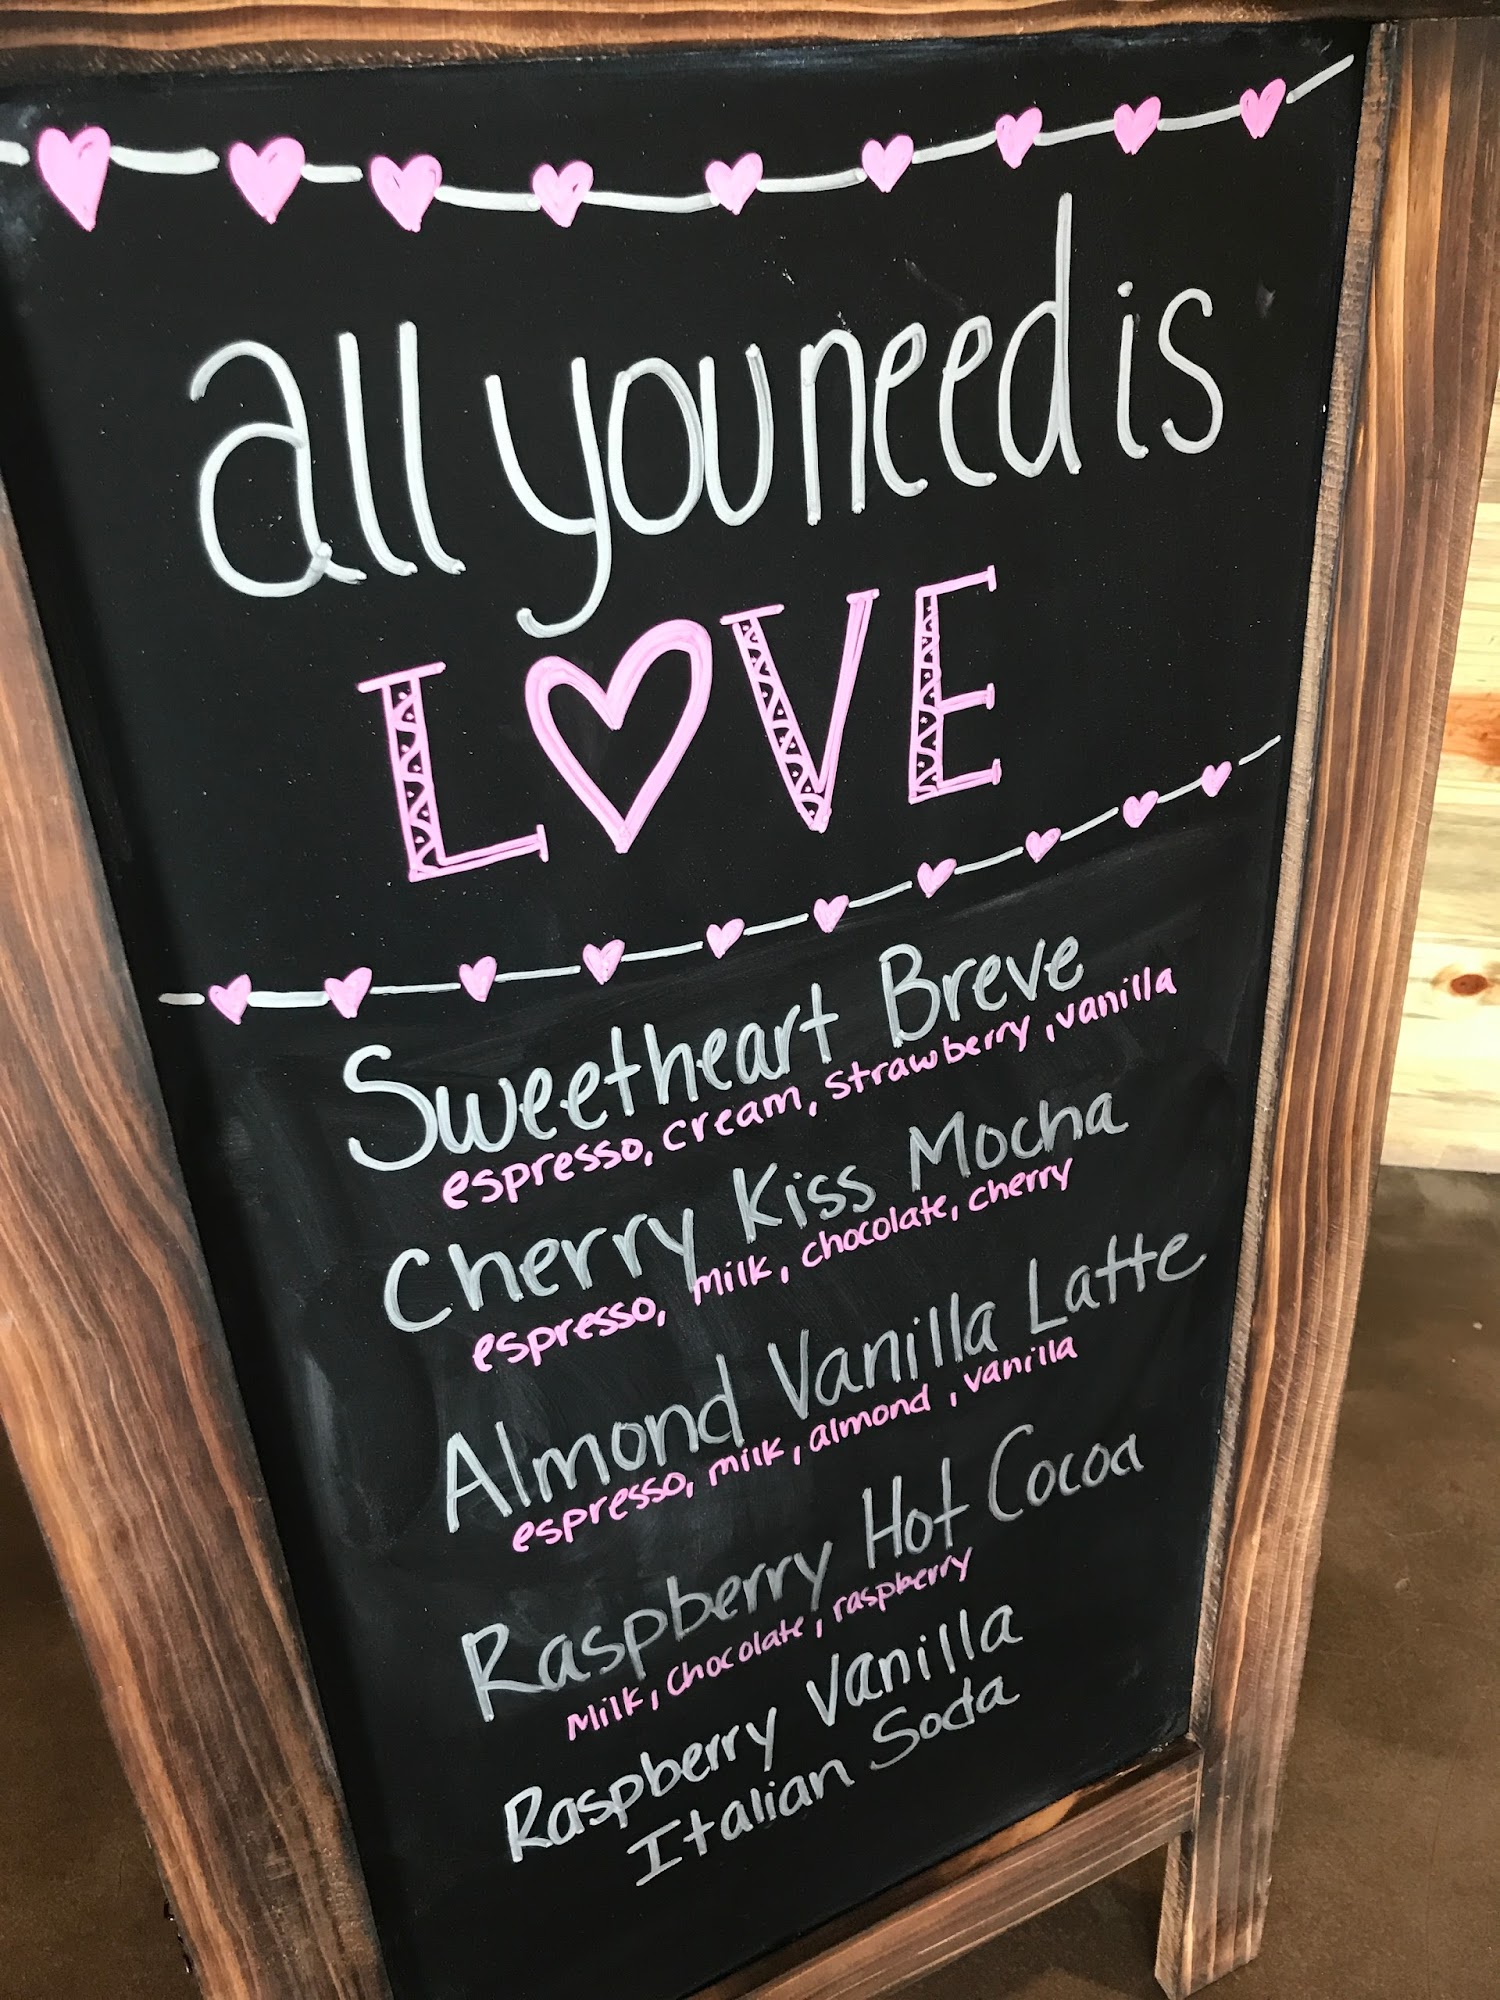 all you need is
LOVE
Sweetheart Breve
espresso, cream, strawberry, vanilla
Cherry Kiss Mocha
espresso, milk, chocolate, cherry
Almond Vanilla Latte
espresso, milk, almond, vanilla
Raspberry Hot Cocoa
milk, chocolate, raspberry
Raspberry Vanilla
Italian Soda